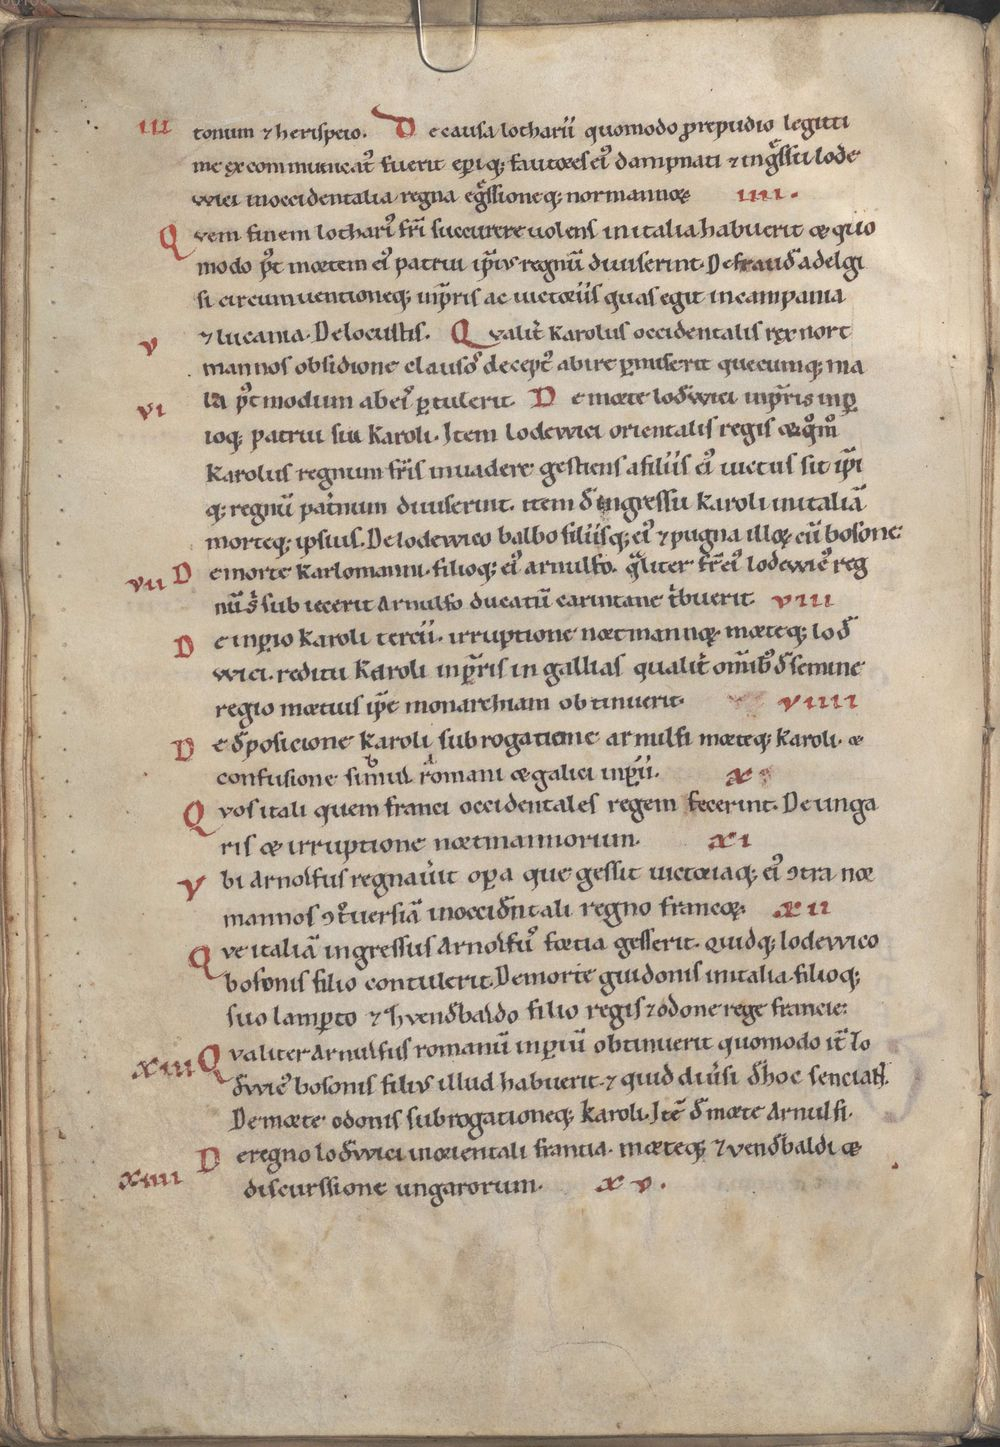 III tonum ⁊ herispeio. De causa lotharii quomodo ꝓ repudio legitti
me excommunicat᷒ fuerit eꝑiq; fautores ei᷒ dampnati ⁊ ingͤssu lode
wici in occidentalia regna egͤssioneq; normannoꝝ IIII.
Qvem finem lothari᷒ fr̄i succurrere uolens in italia habuerit & quo
modo p᷒t mortem ei᷒ patrui ip̄ius regnū diuiserint. De fraude adelgi
si circumuentioneq; inp̄ris ac uictoriis quas egit in campania
V ⁊ lucania. De locustis. Qvalit̄ Karolus occidentalis rex nort
mannos obsidione clausos decept᷒ abire ꝑmiserit quecumq; ma
VI la p᷒tmodum ab ei᷒ ꝑtulerit. De morte lodwici inp̄ris inꝑ
ioq; patrui sui Karoli. Item lodewici orientalis regis & qͦm̊
Karolus regnum fr̄is inuadere gestiens a filiis ei᷒ uictus sit ip̄i
q; regnū pat̄num diuiserint. item đ ingressu Karoli in italiā
morteq; ipsius. De lodewico balbo filiisq; ei᷒ ⁊ pugna illoꝝ cū bosone
VII De morte Karlomanni. filioq; ei᷒ arnulfo. qͣliter fr̄ ei᷒ lodewic᷒ reg
nū s᷒ sub iecerit Arnulfo ducatū carintane t̄buerit. VIII
De inꝑio Karoli tercii. irruptione nortmannoꝝ morteq; lođ
wici. reditu Karoli inp̄ris in gallias qualit̄ om̄ib᷒ đ semine
regio mortuis ip̄e monarchiam obtinuerit. VIIII
De đposicione Karoli subrogatione arnulfi morteq; Karoli. &
confusione simul romani & galici inꝑii. X
Qvos itali quem franci occidentales regem fecerint. De unga
ris & irruptione nortmannorum. XI
Vbi Arnolfus regnauit oꝑa que gessit uictoriaq; ei᷒ ꝯtra nor
mannos ꝯt̄uersiā in occiđntali regno francoꝝ. XII
Qve italiā ingressus Arnolfus fortia gesserit. Quidq; lodewico
bosonis filio contulerit. De morte guidonis in italia. filioq;
suo lamꝑto ⁊ zvendbaldo filio regis ⁊ odone rege francie.
XIII Qvaliter Arnulfus romanū inꝑiū obtinuerit quomodo it̄ lo
đwic᷒ bosonis filius illud habuerit. ⁊ quid diu̓si đ hoc senciant.
De morte odonis subrogationeq; Karoli. Itē đ morte Arnulfi.
XIIII De regno lođwici in orientali francia. morteq; zvendbaldi &
discurssione ungarorum. XV.